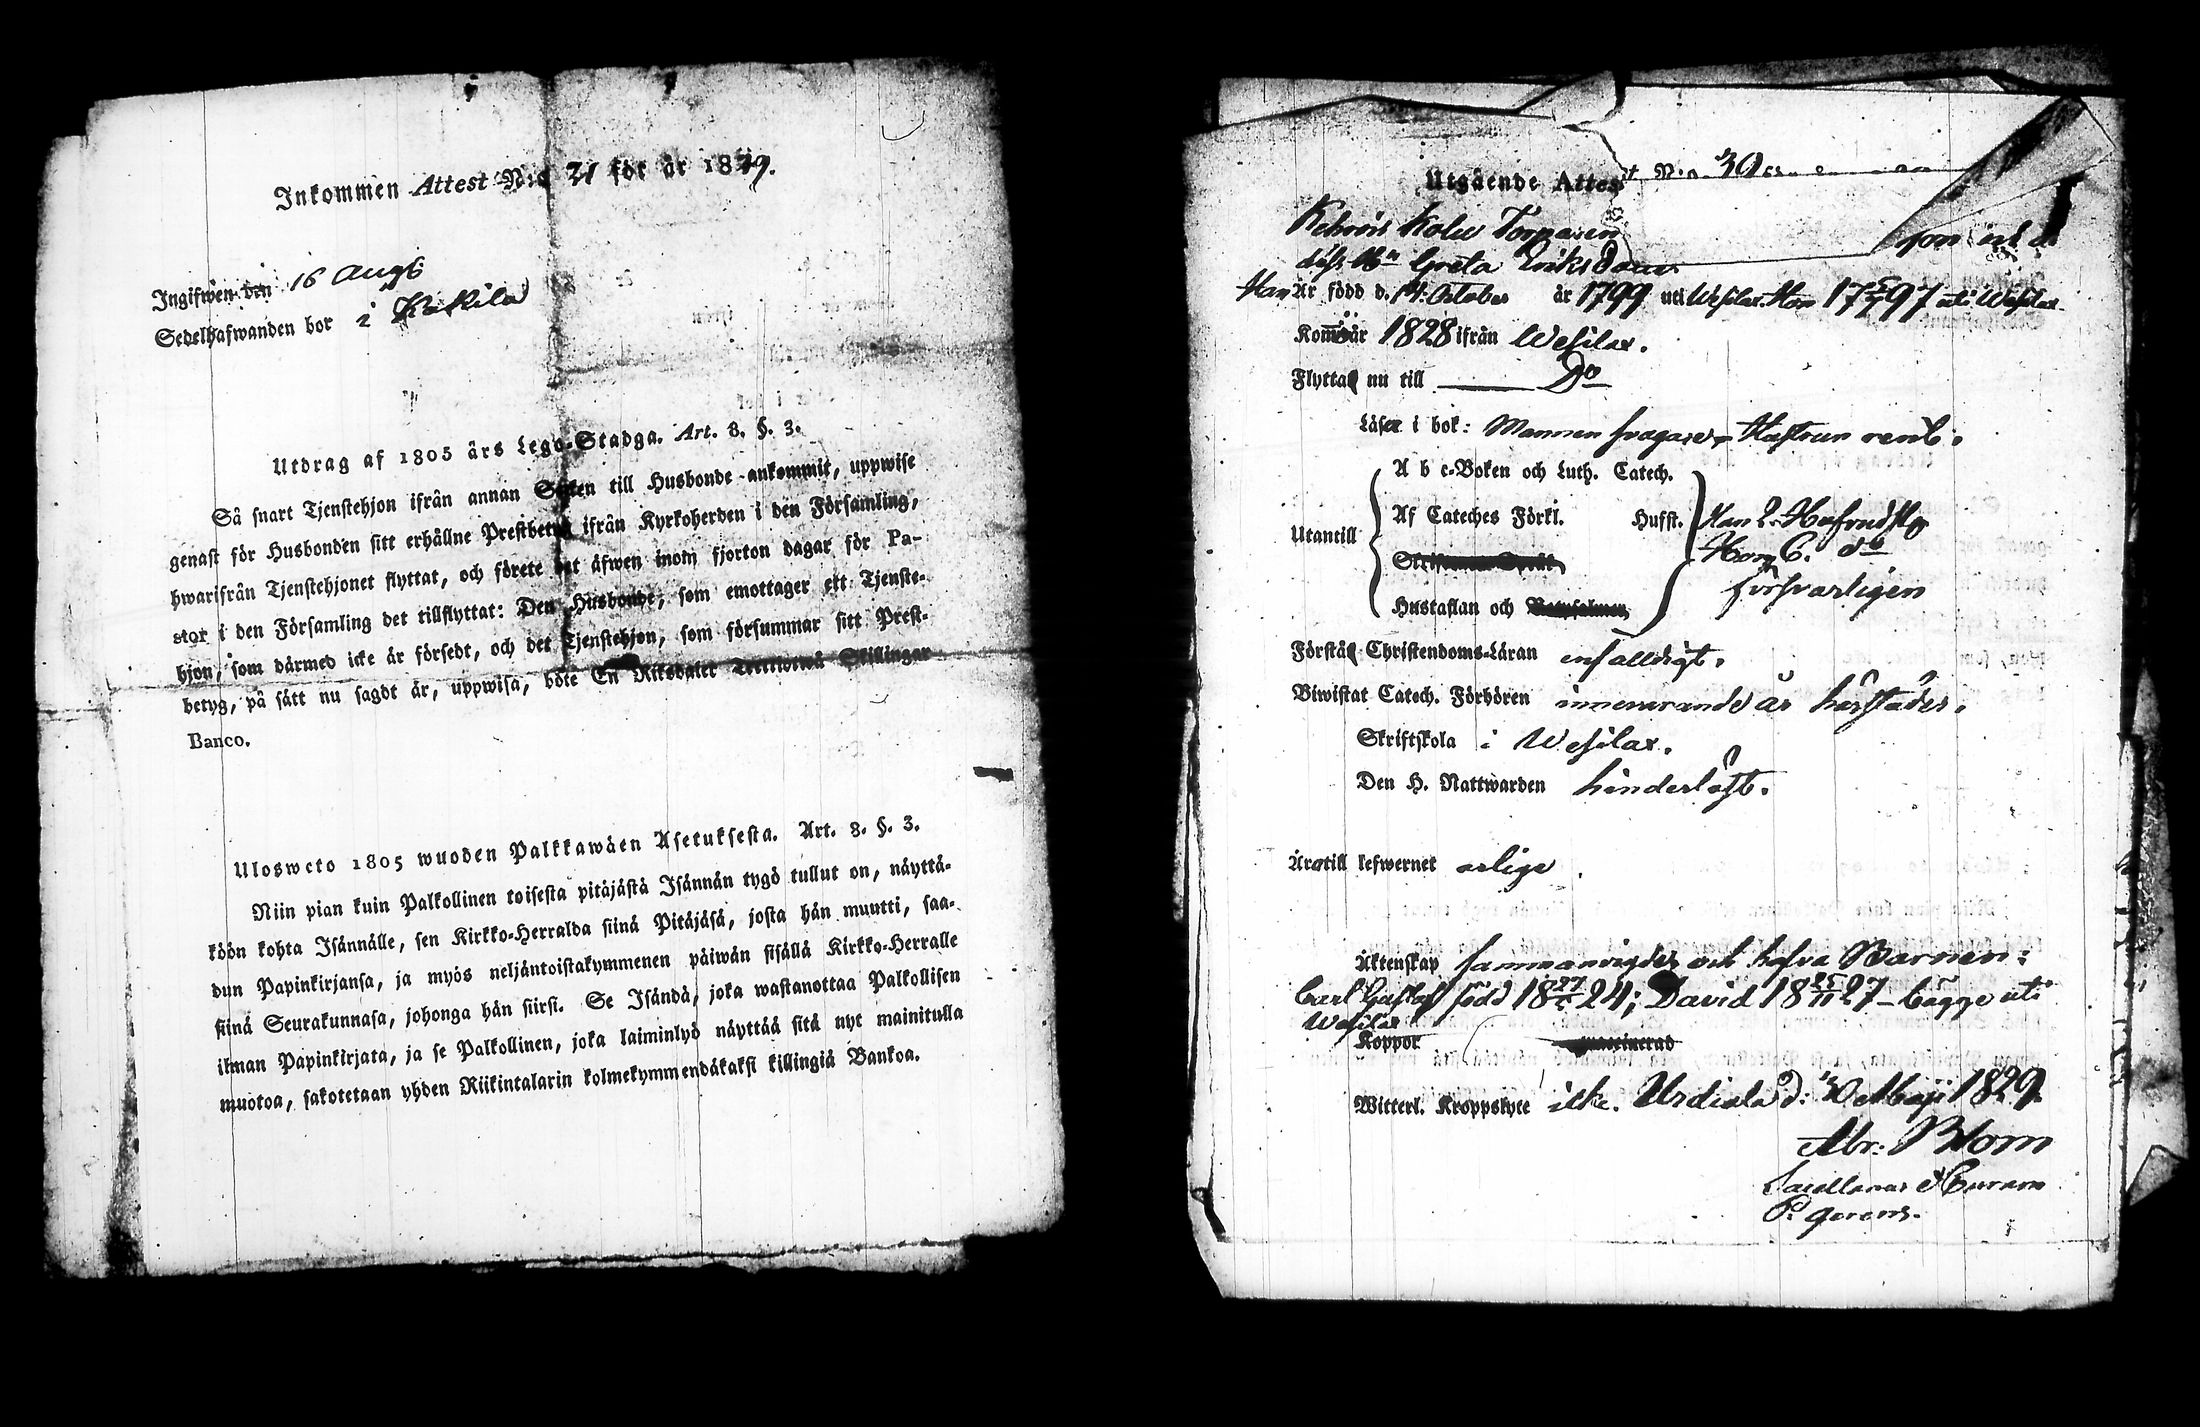 Inkommen Attest N:o 21 för år 1829.
Ingifwen den 16 Aug
Sedelhafwanden bor i Kokila
Utdrag af 1805 års Lego-Stadga. Art. 8. §. 3.
Så snart Tjenstehjon ifrån annan Socken till Husbonde ankommit, uppwise
genast för Husbonden sitt erhållne Prestbetyg ifrån Kyrkoherden i den Församling,
hwarifrån Tjenstehjonet flyttat, och förete det äfwen inom fjorton dagar för Pa-
stor i den Församling det tillflyttat: Den Husbonde, som emottager ett Tjenste-
hjon, som därmed icke är försedt, och det Tjenstehjon, som försummar sitt Prest-
betyg, på sätt nu sagdt är, uppwisa, böte En Riksdaler Trettiotwå Skillingar
Banco.
Ulosweto 1805 wuoden Palkkawäen Asetuksesta. Art. 8. §. 3.
Niin pian kuin Palkollinen toisesta pitäjästä Isännän tygö tullut on, näyttä-
köön kohta Isännälle, sen Kirkko-Herralda siinä Pitäjäsä, josta hän muutti, saa-
dun Papinkirjansa, ja myös neljäntoistakymmenen päiwän sisällä Kirkko-Herralle
siinä Seurakunnasa, johonga hän siirsi. Se Isändä, joka wastanottaa Palkollisen
ilman Papinkirjata, ja se Palkollinen, joka laiminlyö näyttää sitä nyt mainitulla
muotoa, sakotetaan yhden Riikintalarin kolmekymmendäkaksi killingiä Bankoa.
Utgående Attest N:o 30
Torparen
Greta Eriksdotter
Han Är född d. 14 October år 1799 uti Wesilax Hon 1797 uti Wesilax
Kom år 1828 ifrån Wesilax.
Flytta nu till Do
Läser i bok: Mannen svagare, Hustrun rent.
A b c-Boken och Luth. Catech.
Af Cateches Förkl. Hufst. Han 2. Hufvudst
Utantill Hon 6. do
Hustaflan och försvarligen
Förstå Christendoms-Läran enfalldigt.
Biwistat Catech. Förhören innevarande år härstädes.
Skriftskola i Wesilax.
Den H. Nattwarden hinderlöst.
Äro till lefwernet ärlige
Äktenskap sammanvigde och hafva Barnen:
Carl Gustaf född 18 27 24; David 18 25/11 27 - bägge uti
Wesilax
Koppor
Witterl. Kroppslyte icke. Urdiala d: 30 Maji 1829.
Abr: Blom
Sacellanus & Curam
P. gerens.